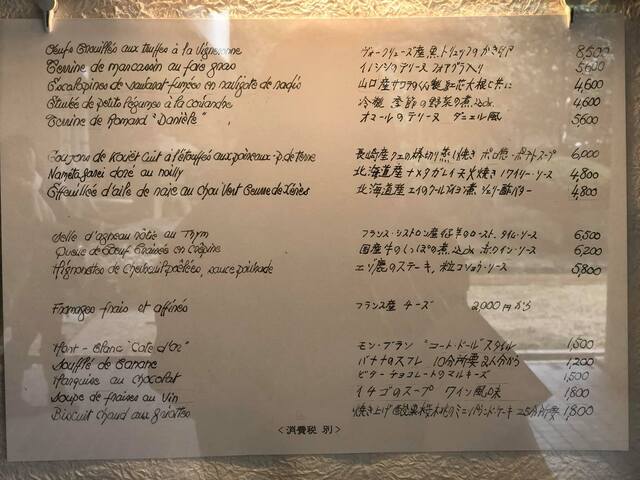 Oeufs Brouillés aux truffes à la Vigneronne ヴォークリューズ産黒トリュフのかき卵 8,500
Terrine de marcassin au foie gras イノシシのテリーヌ フォアグラ入り 5,600
Escalopines de saumon fumées en 山口産 燻製 紅芯大根と共に 4,600
Étuvée de petits légumes à la coriandre 冷製 季節の野菜の煮込み 4,600
Terrine de Homard "Danièle" オマールのテリーヌ ダニエル風 5,600
Goujons de Kouet cuit à l'étouffée aux poireaux-p.de terre 長崎産クエの棒切り蒸し焼き ポロ葱-ポテトスープ 6,000
Nameta garei doré au noilly 北海道産ナメタガレイ天火焼きノワイリーソース 4,800
Effeuillée d'aile de raie au Chou Vert 北海道産エイのクールブイヨン煮 シェリー酢バター 4,800
Selle d'agneau rôtie au Thym フランス・シストロン産仔羊のロースト、タイム・ソース 6,500
Queue de Boeuf Braisée en Crépine 国産牛のしっぽの煮込み 赤ワイン・ソース 6,200
Mignonettes de Chevreuil poêlées, sauce poivrade エゾ鹿のステーキ、粒コショウ・ソース 5,800
Fromages frais et affinés フランス産 チーズ 2,000円から
Mont-Blanc "Cote d'Or" モン・ブラン "コート・ドール"スタイル 1,500
Soufflé de Banane バナナのスフレ 10分所要 2人分から 1,200
Marquise au Chocolat ビターチョコレートのマルキーズ 1,500
Soupe de fraises au Vin イチゴのスープ ワイン風味 1,800
Biscuit chaud aux griottes 焼き上げ 桜桃のミニパウンドケーキ 25分所要 1,800
＜消費税 別＞